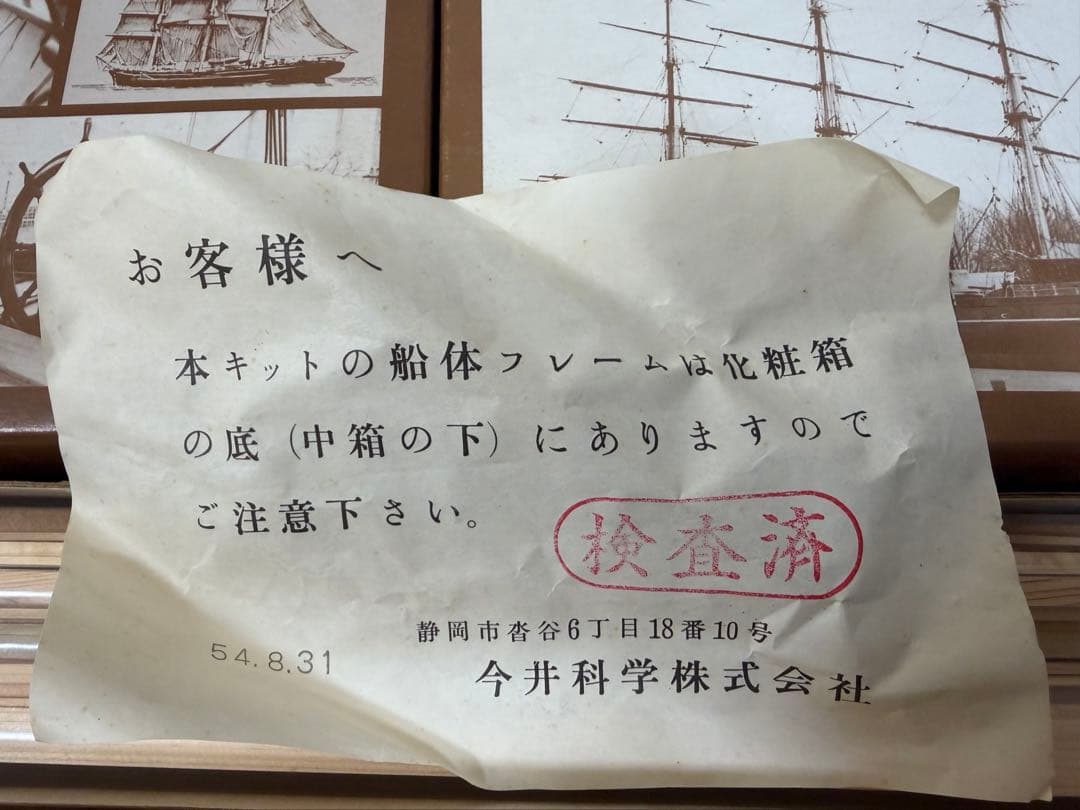 お客様へ
本キットの船体フレームは化粧箱
の底(中箱の下)にありますので
ご注意下さい。
検査済
静岡市沓谷6丁目18番10号
54.8.31
今井科学株式会社